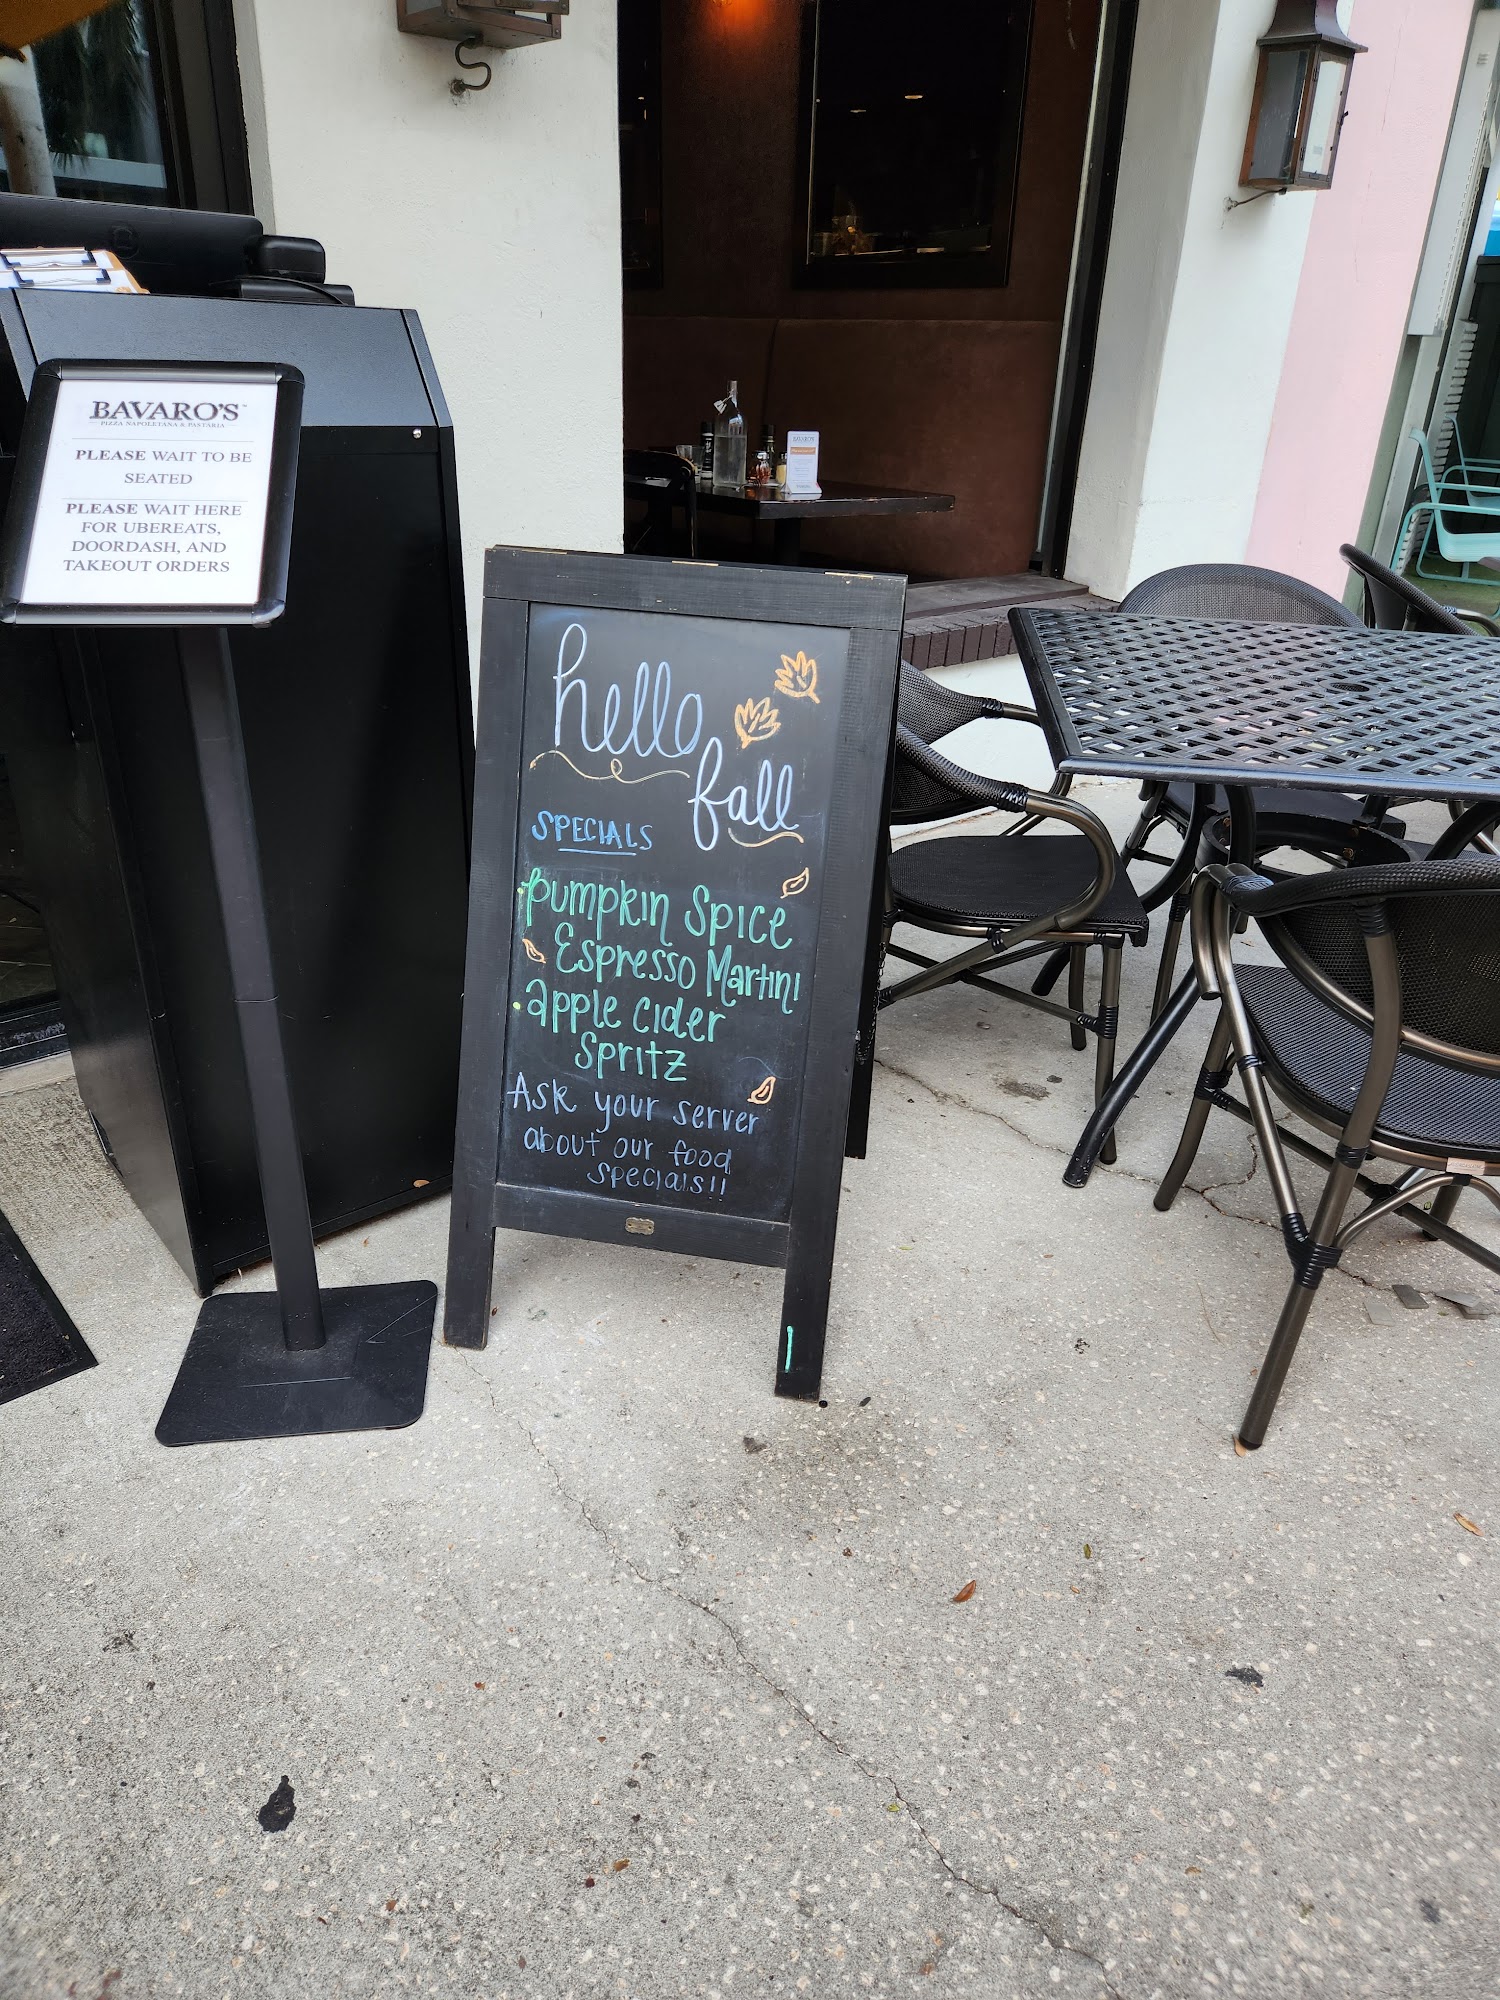 BAVARO'S
PIZZA NAPOLETANA & PASTARIA
PLEASE WAIT TO BE
SEATED
PLEASE WAIT HERE
FOR UBEREATS,
DOORDASH, AND
TAKEOUT ORDERS
hello
fall
SPECIALS
• pumpkin Spice
Espresso Martini
• apple cider
Spritz
Ask your server
about our food
specials!!
BAVARO'S